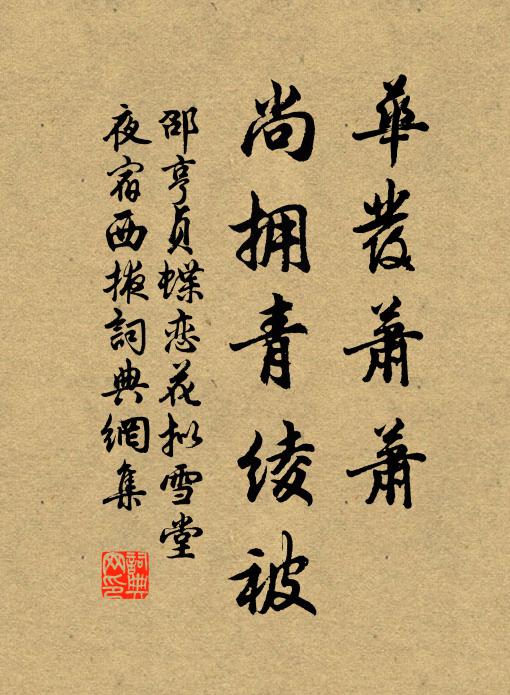 華發蕭蕭
尚拥青綾被
邵亨貞蝶恋花拟雪堂
夜宿西掖詞典網集
詞典網印